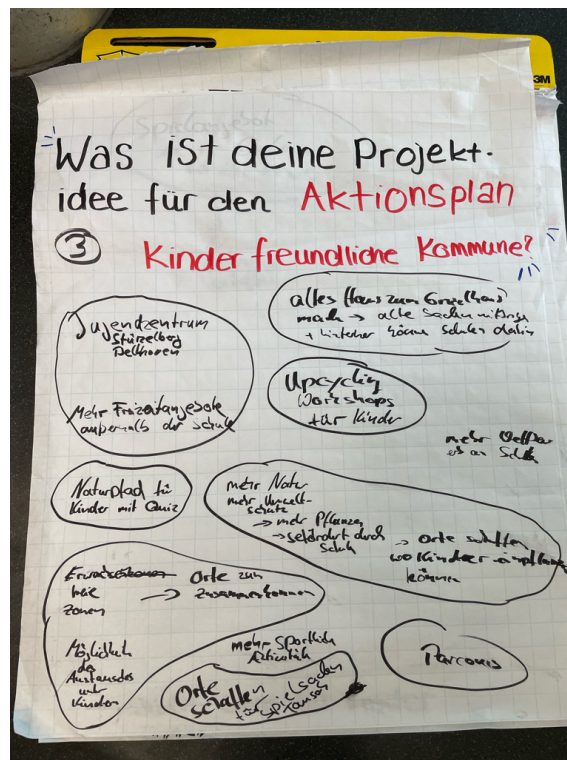 3M
Spielangebot
Was ist deine Projekt-
idee für den Aktionsplan
3 Kinderfreundliche Kommune?
Jugendzentrum
Stürzelberg
Delhoven
Mehr Freizeitangebote
außerhalb der Schule
altes Haus zum
mach → alte Sachen
+ hinterher können Schulen
Upcycling
Workshops
für Kinder
mehr
es an Schule
Naturpfad für
Kinder mit Quiz
mehr Natur
mehr Umwelt-
schutz
→ mehr Pflanzen
→ gefördert durch
Schule
→ Orte schaffen
wo Kinder einpflanzen
können
Erwachsenen
freie
zonen
→ Orte zum
zusammenkommen
Möglichkeit
des
Austausches
unter
Kindern
mehr Sportlich
Aktivität
Orte
schaffen
für Spielsachen
tauschen
Parcours